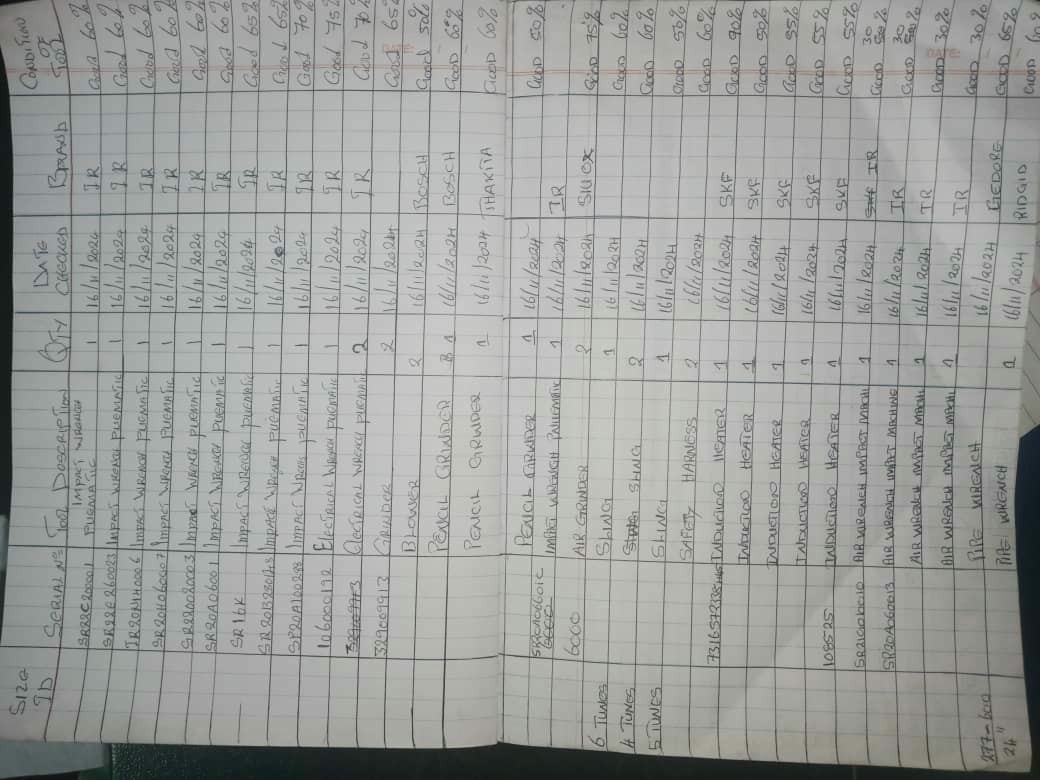 SIZE ID SERIAL No Tool Description QTY DATE CHECKED BRAND CONDITION OF TOOL
SR22C220001 IMPACT WRENCH PUEMATIC 1 16/11/2024 IR Good 60%
SR22E260023 IMPACT WRENCH PUEMATIC 1 16/11/2024 IR Good 60%
IMPACT WRENCH PUEMATIC 1 16/11/2024 IR Good 60%
SR20H060007 IMPACT WRENCH PUEMATIC 1 16/11/2024 IR Good 60%
IMPACT WRENCH PUEMATIC 1 16/11/2024 IR Good 60%
SR20A060001 IMPACT WRENCH PUEMATIC 1 16/11/2024 IR Good 60%
SR16K IMPACT WRENCH PUEMATIC 1 16/11/2024 IR Good 65%
IMPACT WRENCH PUEMATIC 1 16/11/2024 IR Good 65%
IMPACT WRENCH PUEMATIC 1 16/11/2024 IR Good 70%
Electrical WRENCH PUEMATIC 1 16/11/2024 IR Good 75%
Electrical WRENCH PUEMATIC 2 16/11/2024 IR Good 70%
32909913 GRINDER 2 16/11/2024 GOOD 65%
BLOWER 2 16/11/2024 BOSCH GOOD 50%
PENCIL GRINDER 1 16/11/2024 BOSCH GOOD 60%
PENCIL GRINDER 1 16/11/2024 GOOD 60%
PENCIL GRINDER 1 16/11/2024 GOOD 50%
IMPACT WRENCH PNUEMATIC 1 16/11/2024 IR
6000 AIR GRINDER 2 16/11/2024 GOOD 75%
6 TUNES SLING 1 16/11/2024 GOOD 60%
4 TUNES SLING 2 16/11/2024 GOOD 60%
5 TUNES SLING 1 16/11/2024 GOOD 55%
SAFETY HARNESS 2 16/11/2024 GOOD 60%
INDUCTION HEATER 1 16/11/2024 SKF GOOD 90%
INDUCTION HEATER 1 16/11/2024 SKF GOOD 50%
INDUCTION HEATER 1 16/11/2024 SKF GOOD 55%
INDUCTION HEATER 1 16/11/2024 SKF GOOD 55%
108525 INDUCTION HEATER 1 16/11/2024 SKF GOOD 55%
AIR WRENCH IMPACT MACHI 1 16/11/2024 IR GOOD 30%
SR20A060013 AIR WRENCH IMPACT MACHINE 1 16/11/2024 IR GOOD 30%
AIR WRENCH IMPACT MACHI 1 16/11/2024 IR GOOD 30%
AIR WRENCH IMPACT MACHI 1 16/11/2024 IR GOOD 30%
277-600 PIPE WRENCH 16/11/2024 GEDORE GOOD 65%
24" PIPE WRENCH 1 16/11/2024 RIDGID GOOD 60%